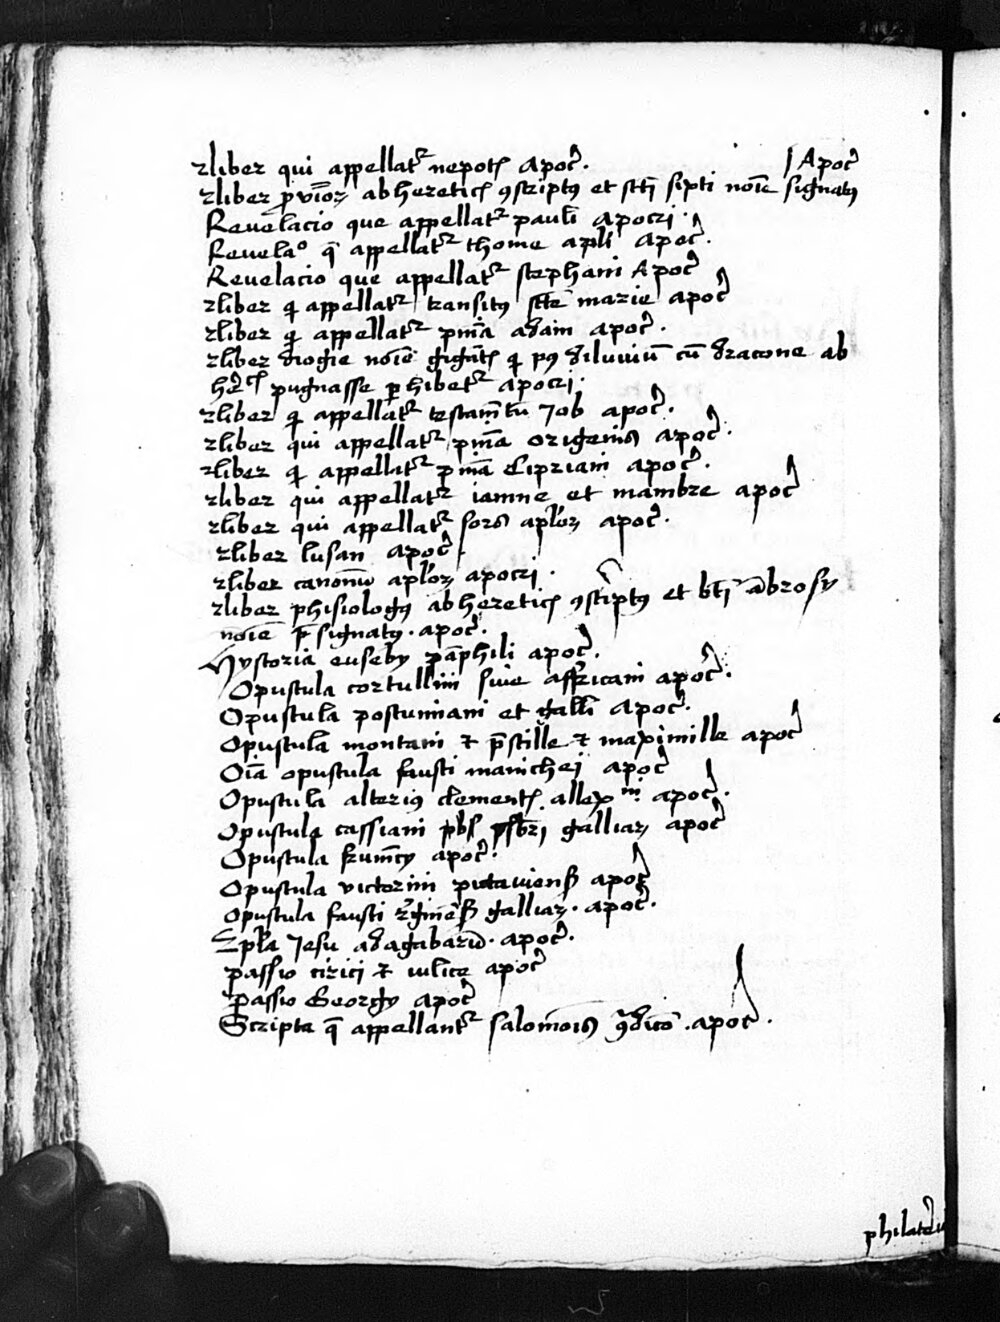 Liber qui appellatr nepotis Apocr.
Apocr
Liber proverbiorum ab hereticis conscriptus et sancti sixti noie signatus
Revelacio que appellatr pauli Apocri.
Revelao q̄ appellatr thome apli Apocr.
Revelacio que appellatr stephani Apocr
Liber qi appellatr transitus scte marie apocr
Liber qi appellatr pnia adam apocr.
Liber diogie noie gigantis qi post diluuiū cū dracone ab
heretcis pugnasse perhibetr apocri.
Liber qi appellatr testamtū Job apocr.
Liber qui appellatr pnia origenis apocr.
Liber qi appellatr pnia Cipriani apocr.
Liber qui appellatr iamne et mambre apocr
Liber qui appellatr sors aplorum apocr.
Liber lusan apocr
Liber canonū aplorum apocri.
Liber phisiologus ab hereticis conscriptus et bti ābrosy
noie signatus. apocr.
Hystoria euseby pāphili apocr.
Opuscula tertulliani sive affricani apocr.
Opuscula postumiani et galli Apocr.
Opuscula montani et pscille et maximille apocr
Oīa opuscula fausti manichei apocr
Opuscula alterius clementis allexni apocr.
Opuscula cassiani pbri galliarum apocr
Opuscula apocr.
Opuscula victorini pictaviensis apocr
Opuscula fausti galliarum. apocr.
Epla Jesu ad agabarū. apocr.
passio cirici et iulite apocr
Passio Georgy apocr
Scripta q̄ appellantr salomōis cōdictō. apocr.
philateria